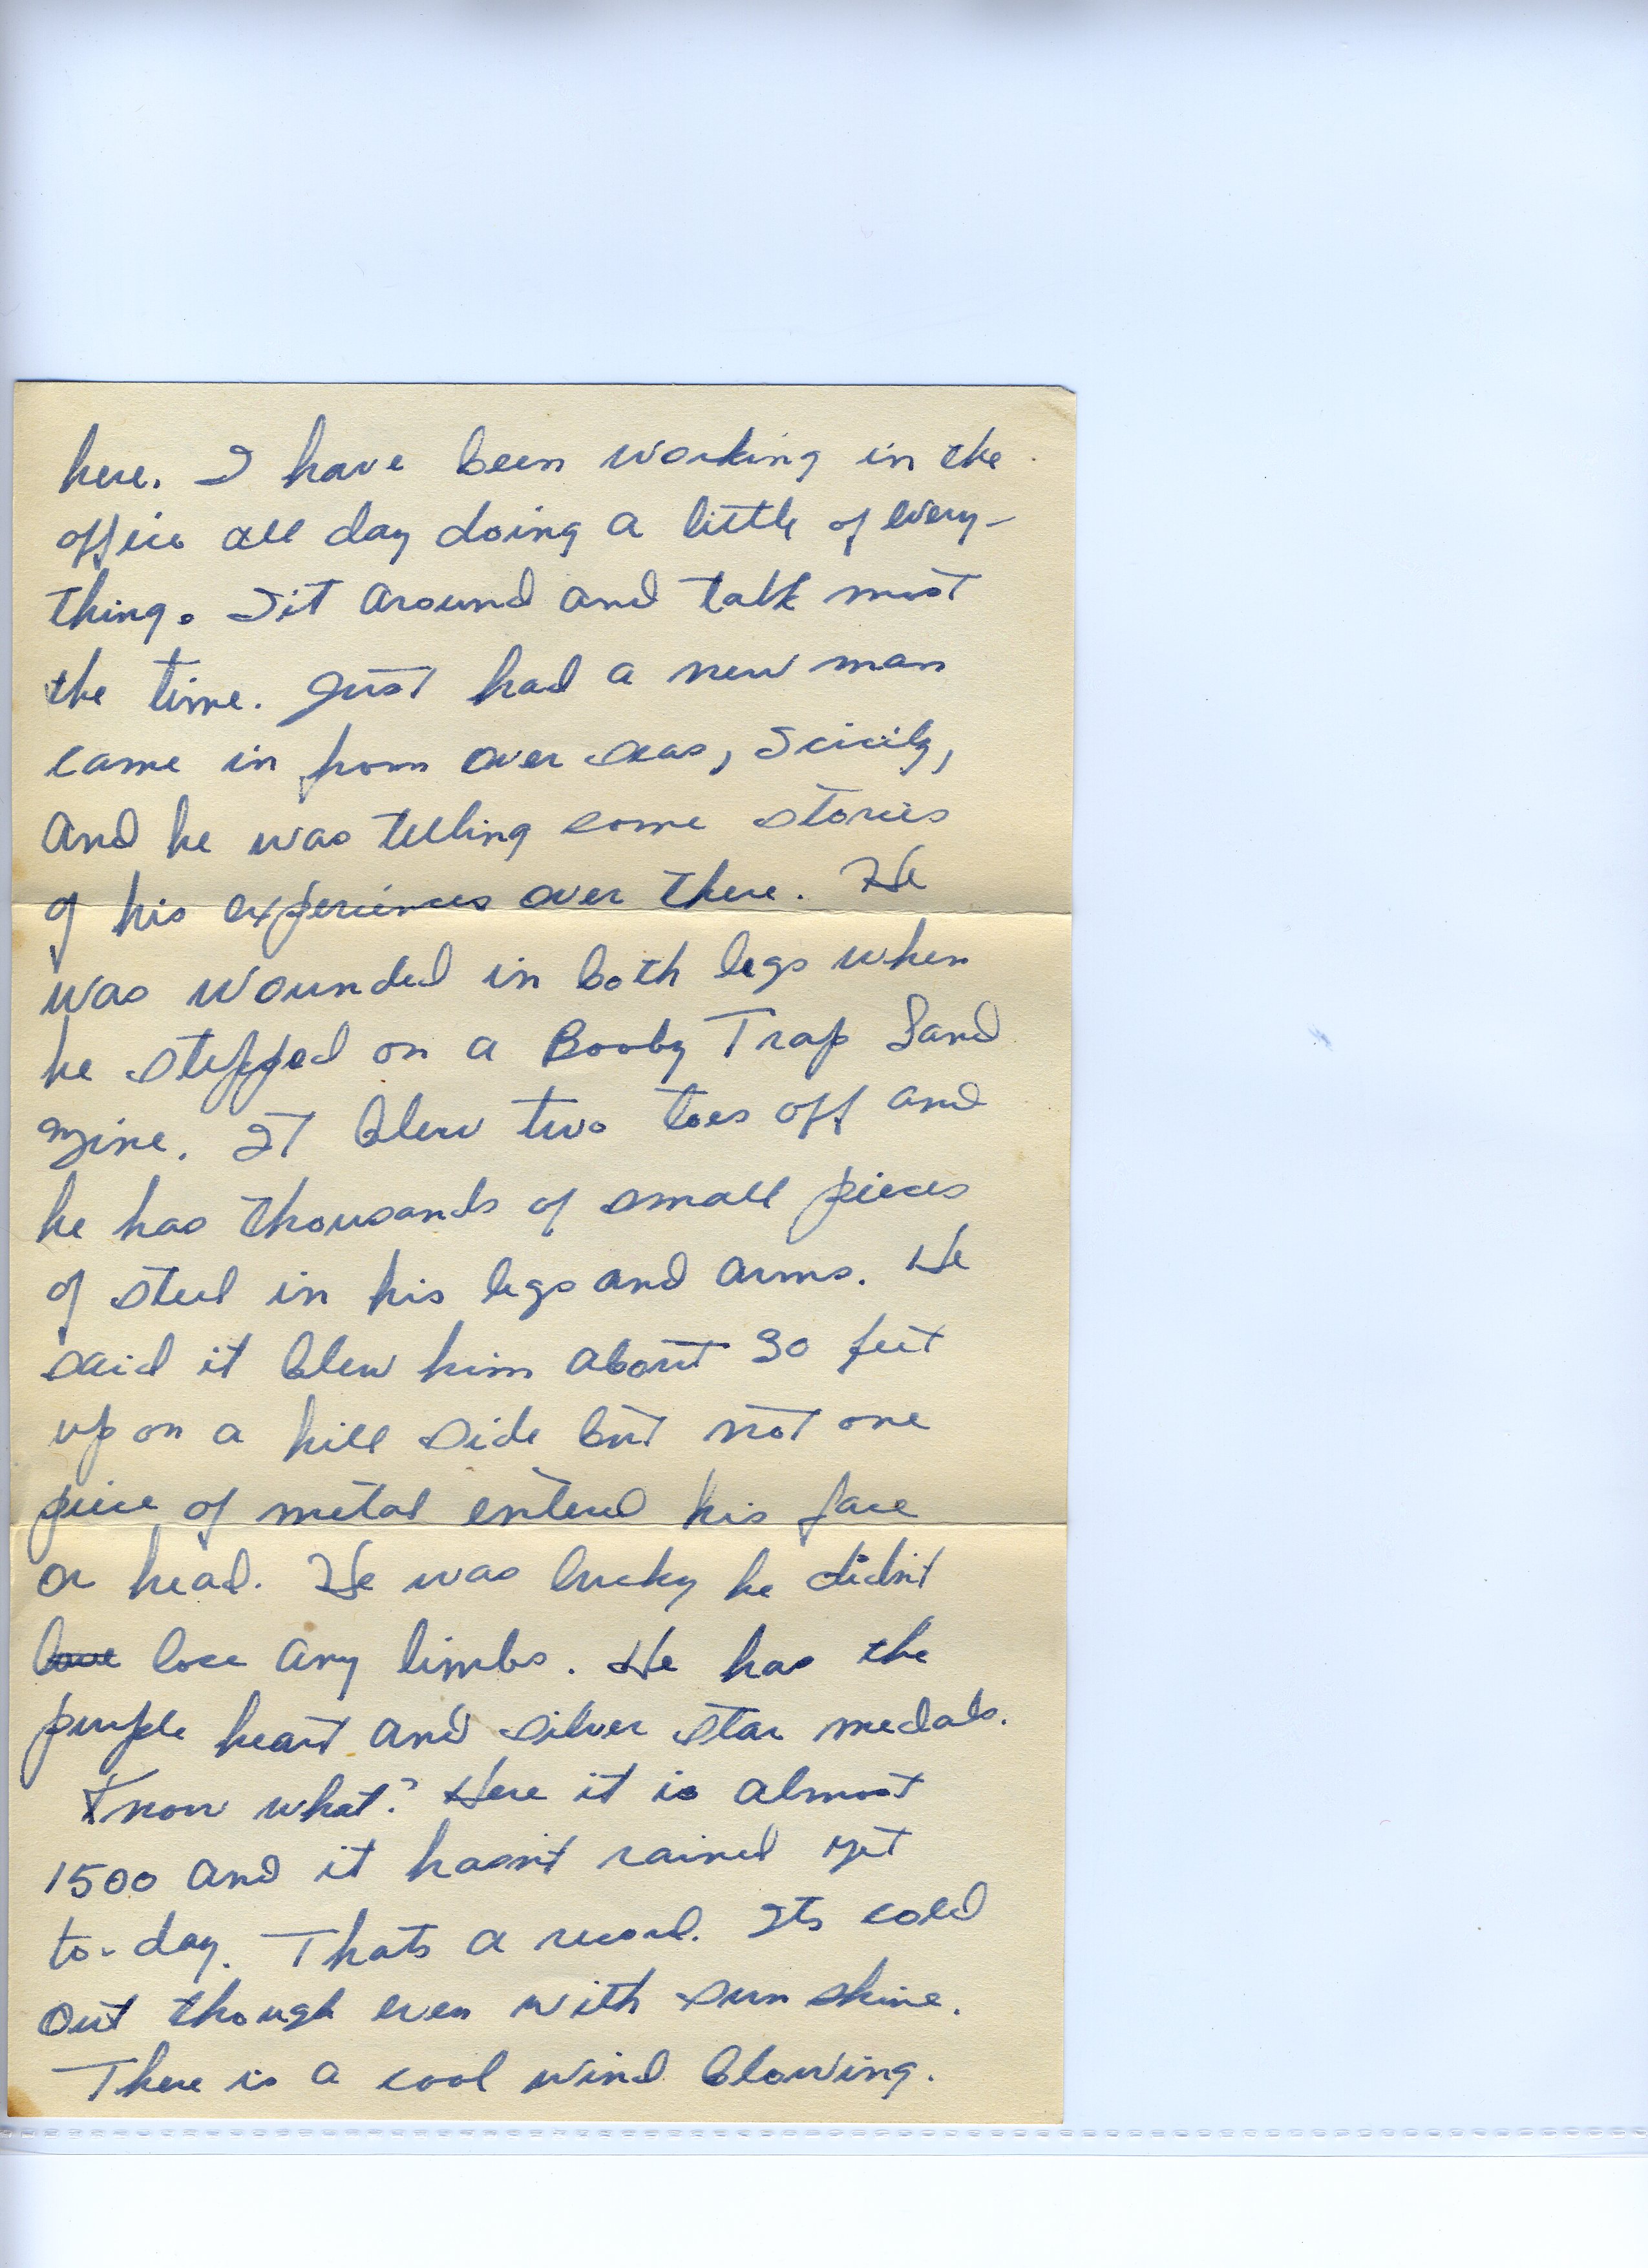 here. I have been working in the
office all day doing a little of every-
thing. Sit around and talk most
the time. Just had a new man
came in from over seas, Scicily,
and he was telling some stories
of his experiences over there. He
was wounded in both legs when
he stepped on a Booby Trap Land
Mine. It blew two toes off and
he has thousands of small pieces
of steel in his legs and arms. He
said it blew him about 30 feet
up on a hill side but not one
piece of metal entered his face
or head. He was lucky he didn't
lose any limbs. He has the
purple heart and silver star medals.
Know what? Here it is almost
1500 and it hasn't rained yet
to-day. Thats a record. Its cold
out though even with sun shine.
There is a cool wind blowing.